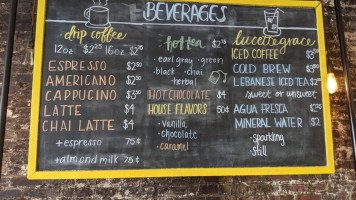 BEVERAGES
drip coffee
12oz $2²⁵ 16oz $2
ESPRESSO $2
AMERICANO $2
CAPPUCINO $3
LATTE $4
CHAI LATTE $4
+espresso 75¢
+almond milk 75¢
hot tea $2
·earl gray ·green·
·black· ·chai·
·herbal·
HOT CHOCOLATE $4
HOUSE FLAVORS 50¢
·Vanilla
·Chocolate
·caramel
lucettegrace
ICED COFFEE $3
COLD BREW $3
LEBANESE ICED TEA $2
sweet or unsweet
AGUA FRESCA $3
MINERAL WATER $2
·sparkling
·still